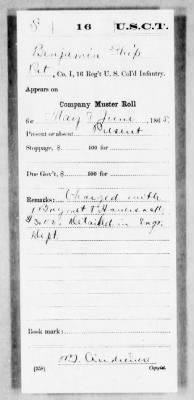 S | 16 | U.S.C.T.
Benjamin Ship
Pvt, Co. I, 16 Reg't U. S. Col'd Infantry.
Appears on
Company Muster Roll
for May & June, 1865.
Present or absent Present
Stoppage, $ 100 for
Due Gov't, $ 100 for
Remarks: Charged with
1 Bayonet 1 Haversack
Detailed in Engr.
Dept.
Book mark:
(358)
Copyist.